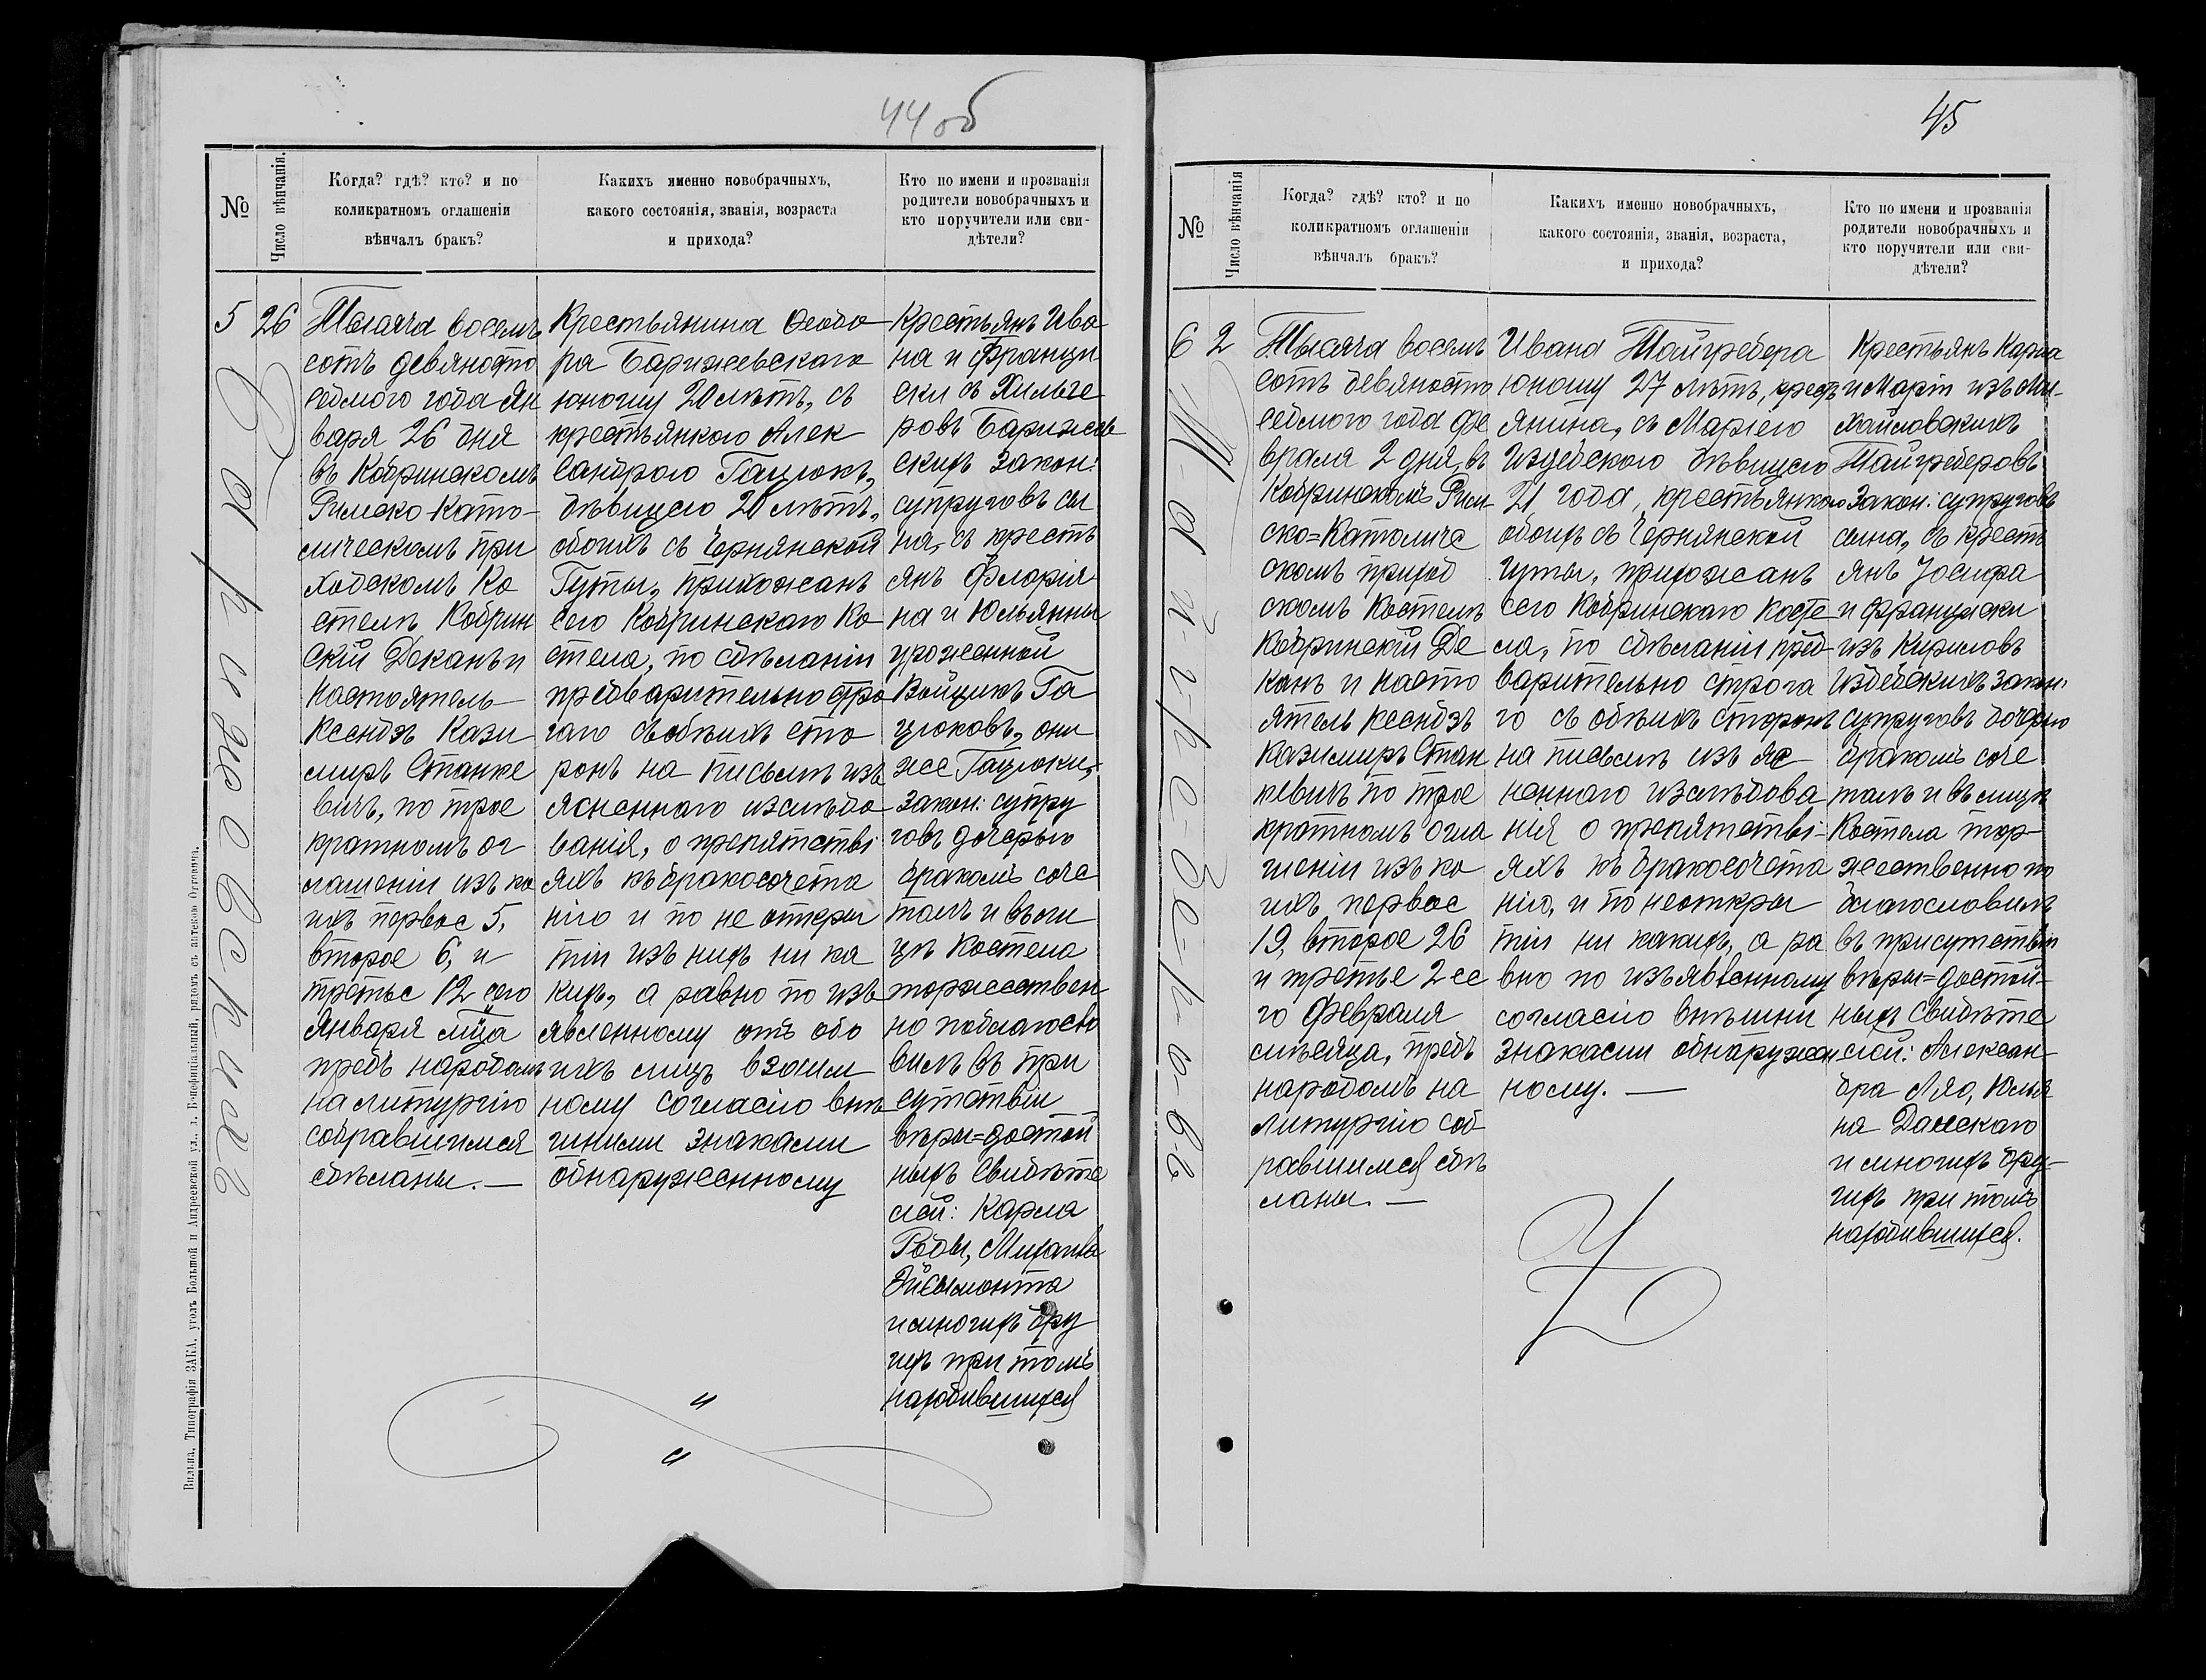 44 об
№
Число вѣнчанія.
Когда? гдѣ? кто? и по
коликратномъ оглашеніи
вѣнчалъ бракъ?
Какихъ именно новобрачныхъ,
какого состоянія, званія, возраста
и прихода?
Кто по имени и прозванія
родители новобрачныхъ и
кто поручители или сви-
дѣтели?
5
26
Барижевскихъ
Тысяча восемь
сотъ девяносто
седмого года Ян
варя 26 дня
въ Кобринскомъ
Римско-Като-
лическомъ при
ходскомъ Ко
стелѣ Кобрин
скій Деканъ и
Настоятель
Ксендзъ Кази
миръ Станке
вичъ, по трое
кратномъ ог
лашеніи изъ ко
ихъ первое 5,
второе 6, и
третье 12 сего
Января м̃ца
предъ народомъ
на литургію
собравшимся
сдѣланы. —
Крестьянина Ѳеодо
ра Барижевскаго
юношу 20 лѣтъ, съ
крестьянкою Алек
сандрою Гацюкъ,
дѣвицею 20 лѣтъ,
обоихъ съ Чернянской
Гуты, прихожанъ
сего Кобринскаго Ко
стела, по сдѣланіи
предварительно стро
гаго съ обѣихъ сто
ронъ на письмѣ изъ
ясненнаго изслѣдо
ванія, о препятстві
яхъ къ бракосочета
нію и по не откры
тіи изъ нихъ ни ка
кихъ, а равно по изъ
явленному отъ обо
ихъ лицъ взаим
ному согласію внѣ
шними знаками
обнаруженному
Крестьянъ Ива
на и Францы
ски съ Хильге
ровъ Барижев
скихъ закон:
супруговъ сы
на, съ кресть
янъ Флорія
на и Юльянны
урожденной
Войцикъ Га
цюковъ, они
же Гацюки,
закон: супру
говъ дочерью
бракомъ соче
талъ и въ ли
цѣ Костела
торжествен
но поблагосло
вилъ въ при
сутствіи
вѣры=достой
ныхъ свидѣте
лей: Карла
Годы, Михаила
Эйсымонта
и многихъ дру
гихъ при томъ
находившихся
Вильна. Типографія ЗАКА. уголъ Большой и Андреевской ул., д. Бенефиціальный, рядомъ съ аптекою Отовича.
45
№
Число вѣнчанія
Когда? гдѣ? кто? и по
коликратномъ оглашеніи
вѣнчалъ бракъ?
Какихъ именно новобрачныхъ,
какого состоянія, званія, возраста,
и прихода?
Кто по имени и прозванія
родители новобрачныхъ и
кто поручители или сви-
дѣтели?
6
2
Тысяча восемь
сотъ девяносто
седмого года Фе
враля 2 дня, въ
Кобринскомъ Рим
ско=Католиче
скомъ приход
скомъ Костелѣ
Кобринскій Де
канъ и насто
ятель ксендзъ
Казимиръ Стан
кевичъ по трое
кратномъ огла
шеніи изъ ко
ихъ первое
19, второе 26
и третье 2 се
го Февраля
мѣсяца, предъ
народомъ на
литургію соб
равшимся сдѣ
ланы. —
Ивана Тайгребера
юношу 27 лѣтъ, крест
янина, съ Маріею
Издебскою дѣвицею
21 года, крестьянкою
обоихъ съ Чернянской
гуты, прихожанъ
сего Кобринскаго косте
ла, по сдѣланіи пред
варительно строга
го съ обѣихъ сторонъ
на письмѣ изъ яс
неннаго изслѣдова
нія о препятстві
яхъ къ бракосочета
нію, и по неоткры
тіи ни какихъ, а ра
вно по изъявленному
согласію внѣшни
знаками обнаружен
ному. —
Крестьянъ Карла
и Маріи изъ Ми-
хайловскихъ
Тайгреберовъ
закон: супруговъ
сына, съ кресть
янъ Іосифа
и Францишки
изъ Кириловъ
Издебскихъ закон:
супруговъ дочерью
бракомъ соче
талъ и въ лицѣ
Костела тор
жественно по
благословилъ
въ присутствіи
вѣры=достой-
ныхъ свидѣте
лей: Алексан-
дра Ляс, Юлья
на Данскаго
и многихъ дру-
гихъ при томъ
находившихся.